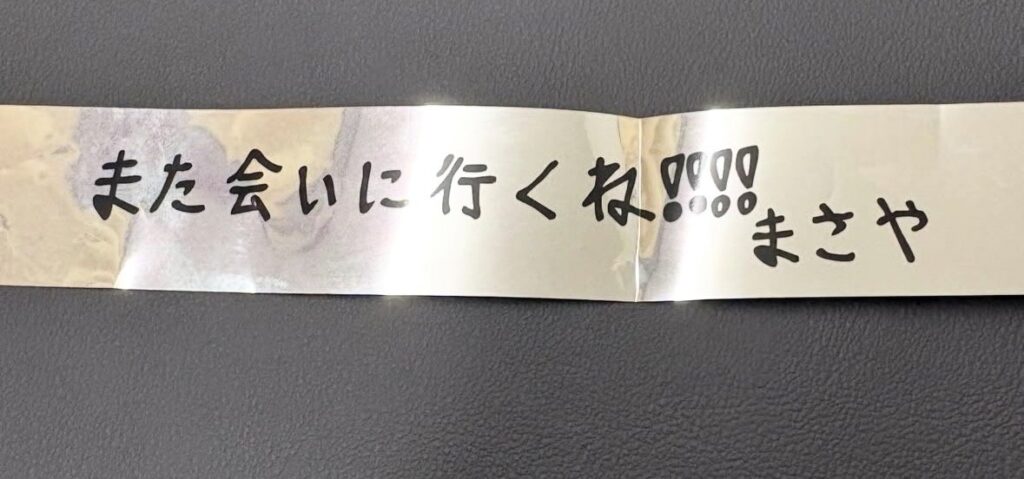 また会いに行くね!!!!
まさや